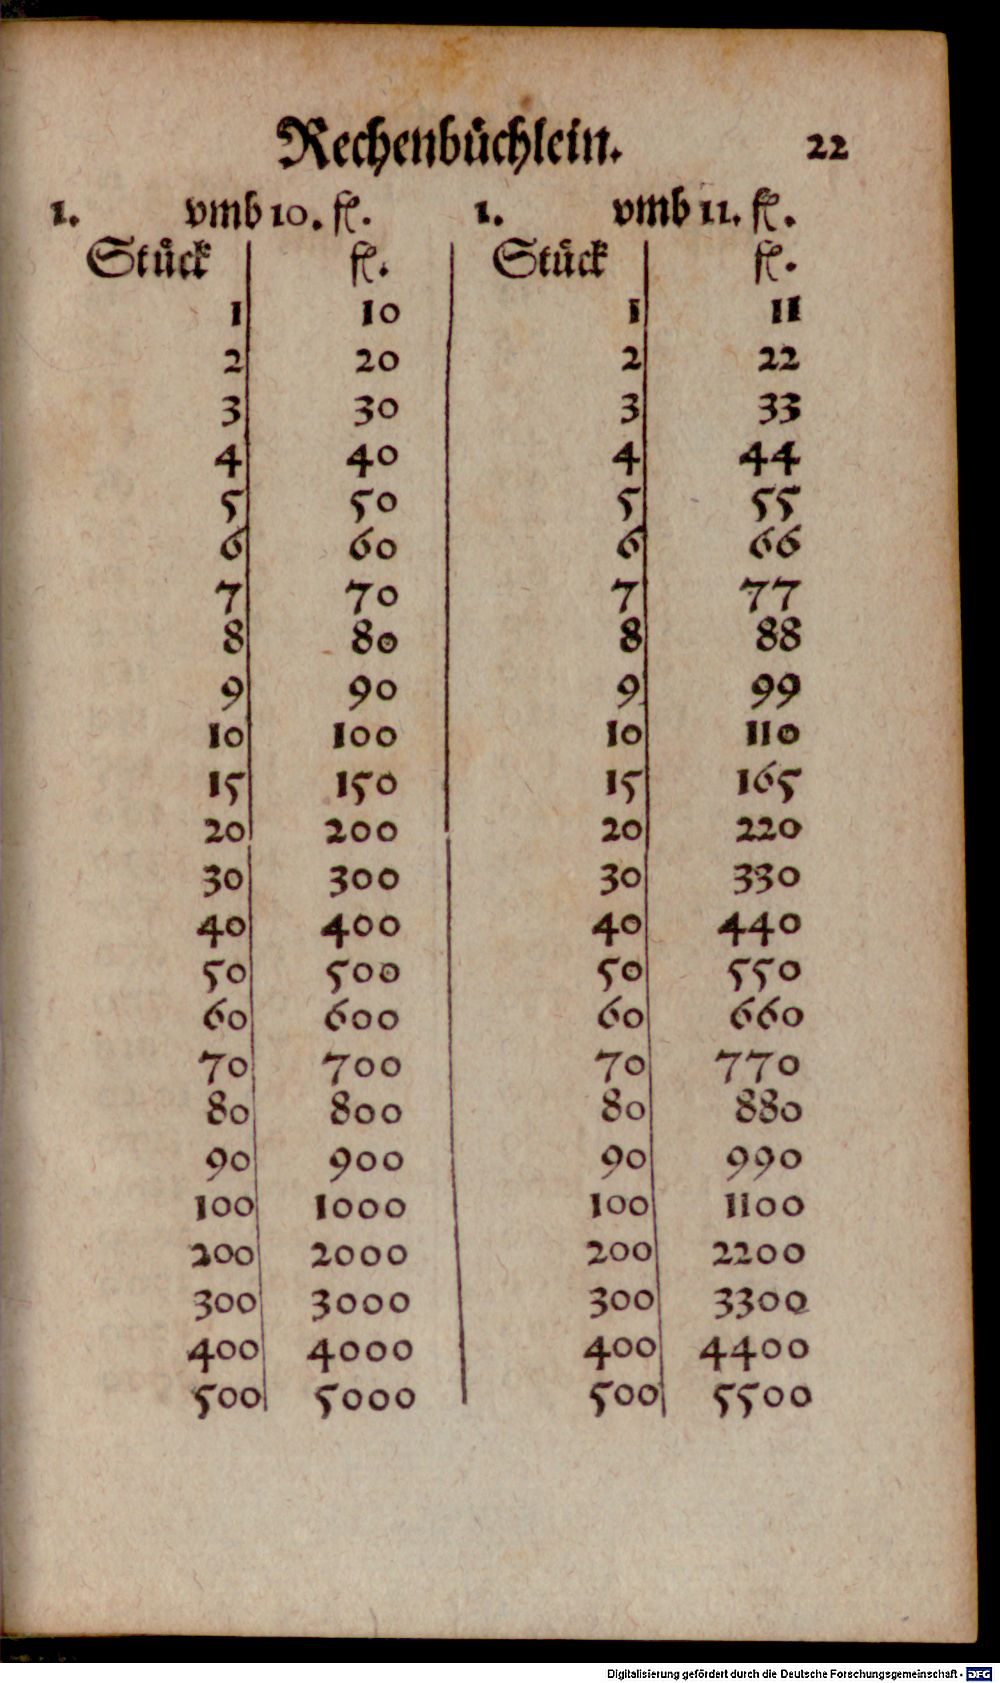 Rechenbůchlein. 22
1. vmb 10. fl. 1. vmb 11. fl.
Stůck fl. Stůck fl.
1 10 1 11
2 20 2 22
3 30 3 33
4 40 4 44
5 50 5 55
6 60 6 66
7 70 7 77
8 80 8 88
9 90 9 99
10 100 10 110
15 150 15 165
20 200 20 220
30 300 30 330
40 400 40 440
50 500 50 550
60 600 60 660
70 700 70 770
80 800 80 880
90 900 90 990
100 1000 100 1100
200 2000 200 2200
300 3000 300 3300
400 4000 400 4400
500 5000 500 5500
Digitalisierung gefördert durch die Deutsche Forschungsgemeinschaft - DFG